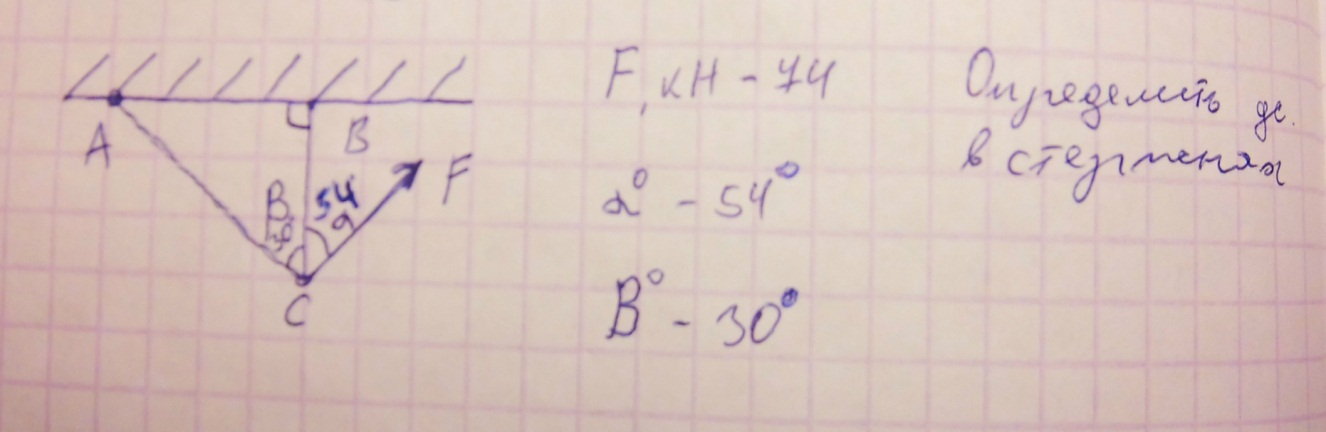 A
B
B°
30°
54
α
F
C
F, кН - 74
α° - 54°
B° - 30°
Определить ус.
в стержнях